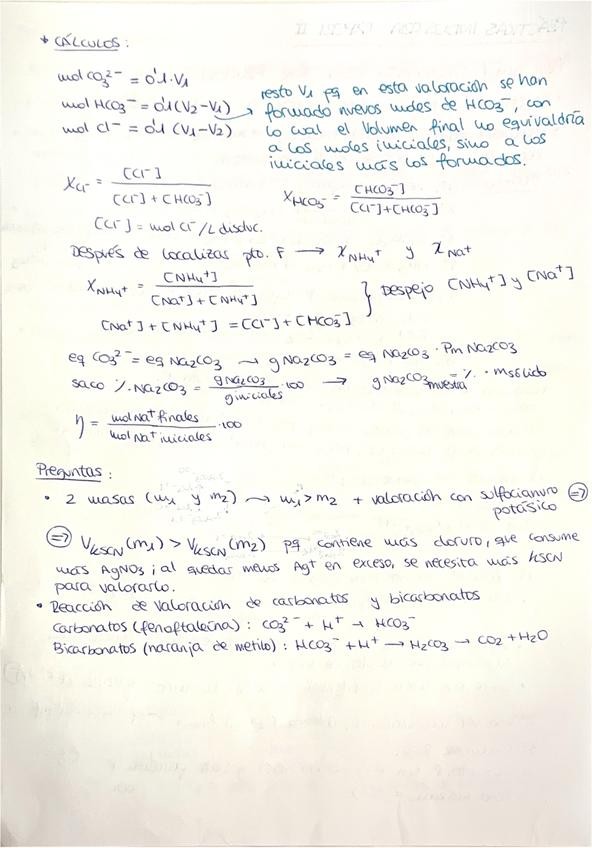 * CÁLCULOS:
mol CO3²⁻ = 0'1·V1
mol HCO3⁻ = 0'1(V2-V1) → resto V1 pq en esta valoración se han
formado nuevos moles de HCO3⁻, con
mol Cl⁻ = 0'1 (V1-V2)
lo cual el volumen final no equivaldría
a los moles iniciales, sino a los
iniciales más los formados.
XCl⁻ = [Cl⁻] / [Cl⁻] + [HCO3⁻]   XHCO3⁻ = [HCO3⁻] / [Cl⁻]+[HCO3⁻]
[Cl⁻] = mol Cl⁻/L disoluc.
Después de localizar pto. F → XNH4⁺ y XNa⁺
XNH4⁺ = [NH4⁺] / [Na⁺] + [NH4⁺]
} Despejo [NH4⁺] y [Na⁺]
[Na⁺] + [NH4⁺] = [Cl⁻] + [HCO3⁻]
eq CO3²⁻ = eq Na2CO3 → g Na2CO3 = eq Na2CO3 · Pm Na2CO3
saco %Na2CO3 = g Na2CO3 / g iniciales · 100 → g Na2CO3 muestra = % · msólido
η = mol Na⁺ finales / mol Na⁺ iniciales · 100
Preguntas:
• 2 masas (m1 y m2) → m1 > m2 + valoración con sulfocianuro ⇒
potásico
⇒ VKSCN(m1) > VKSCN(m2) pq contiene más cloruro, que consume
más AgNO3; al quedar menos Ag⁺ en exceso, se necesita más KSCN
para valorarlo.
• Reacción de valoración de carbonatos y bicarbonatos
Carbonatos (fenoftaleína): CO3²⁻ + H⁺ → HCO3⁻
Bicarbonatos (naranja de metilo): HCO3⁻ + H⁺ → H2CO3 → CO2 + H2O